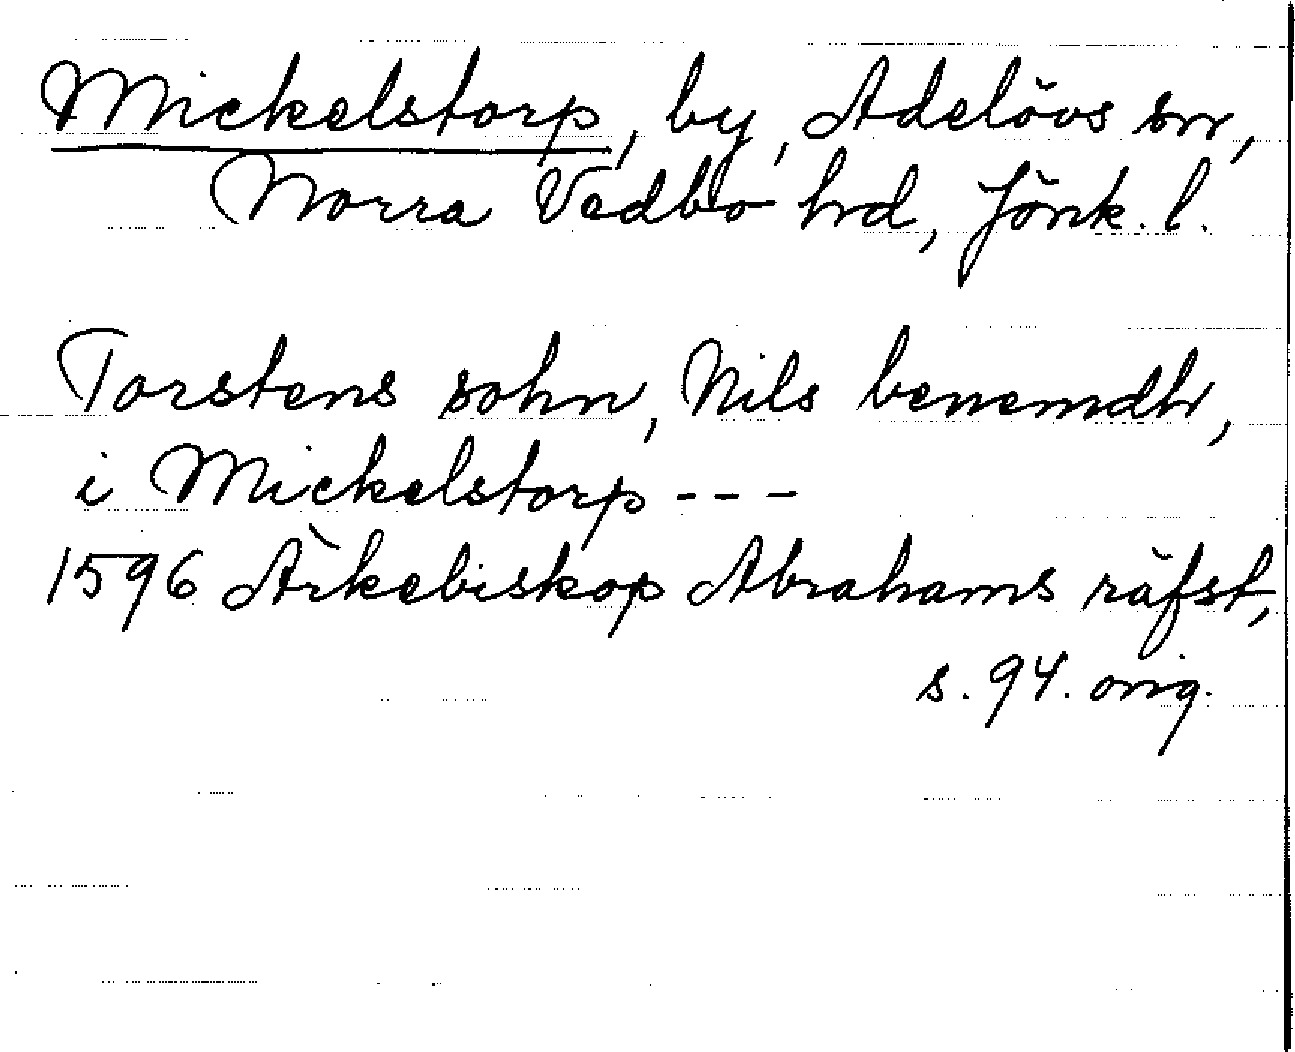 Mickelstorp, by, Adelövs sn,
Norra Vedbo hd, Jönk. l.
Torstens sohn, Nils benemdh,
i Mickelstorp ---
1596 Ärkebiskop Abrahams räfst,
s. 94. orig.